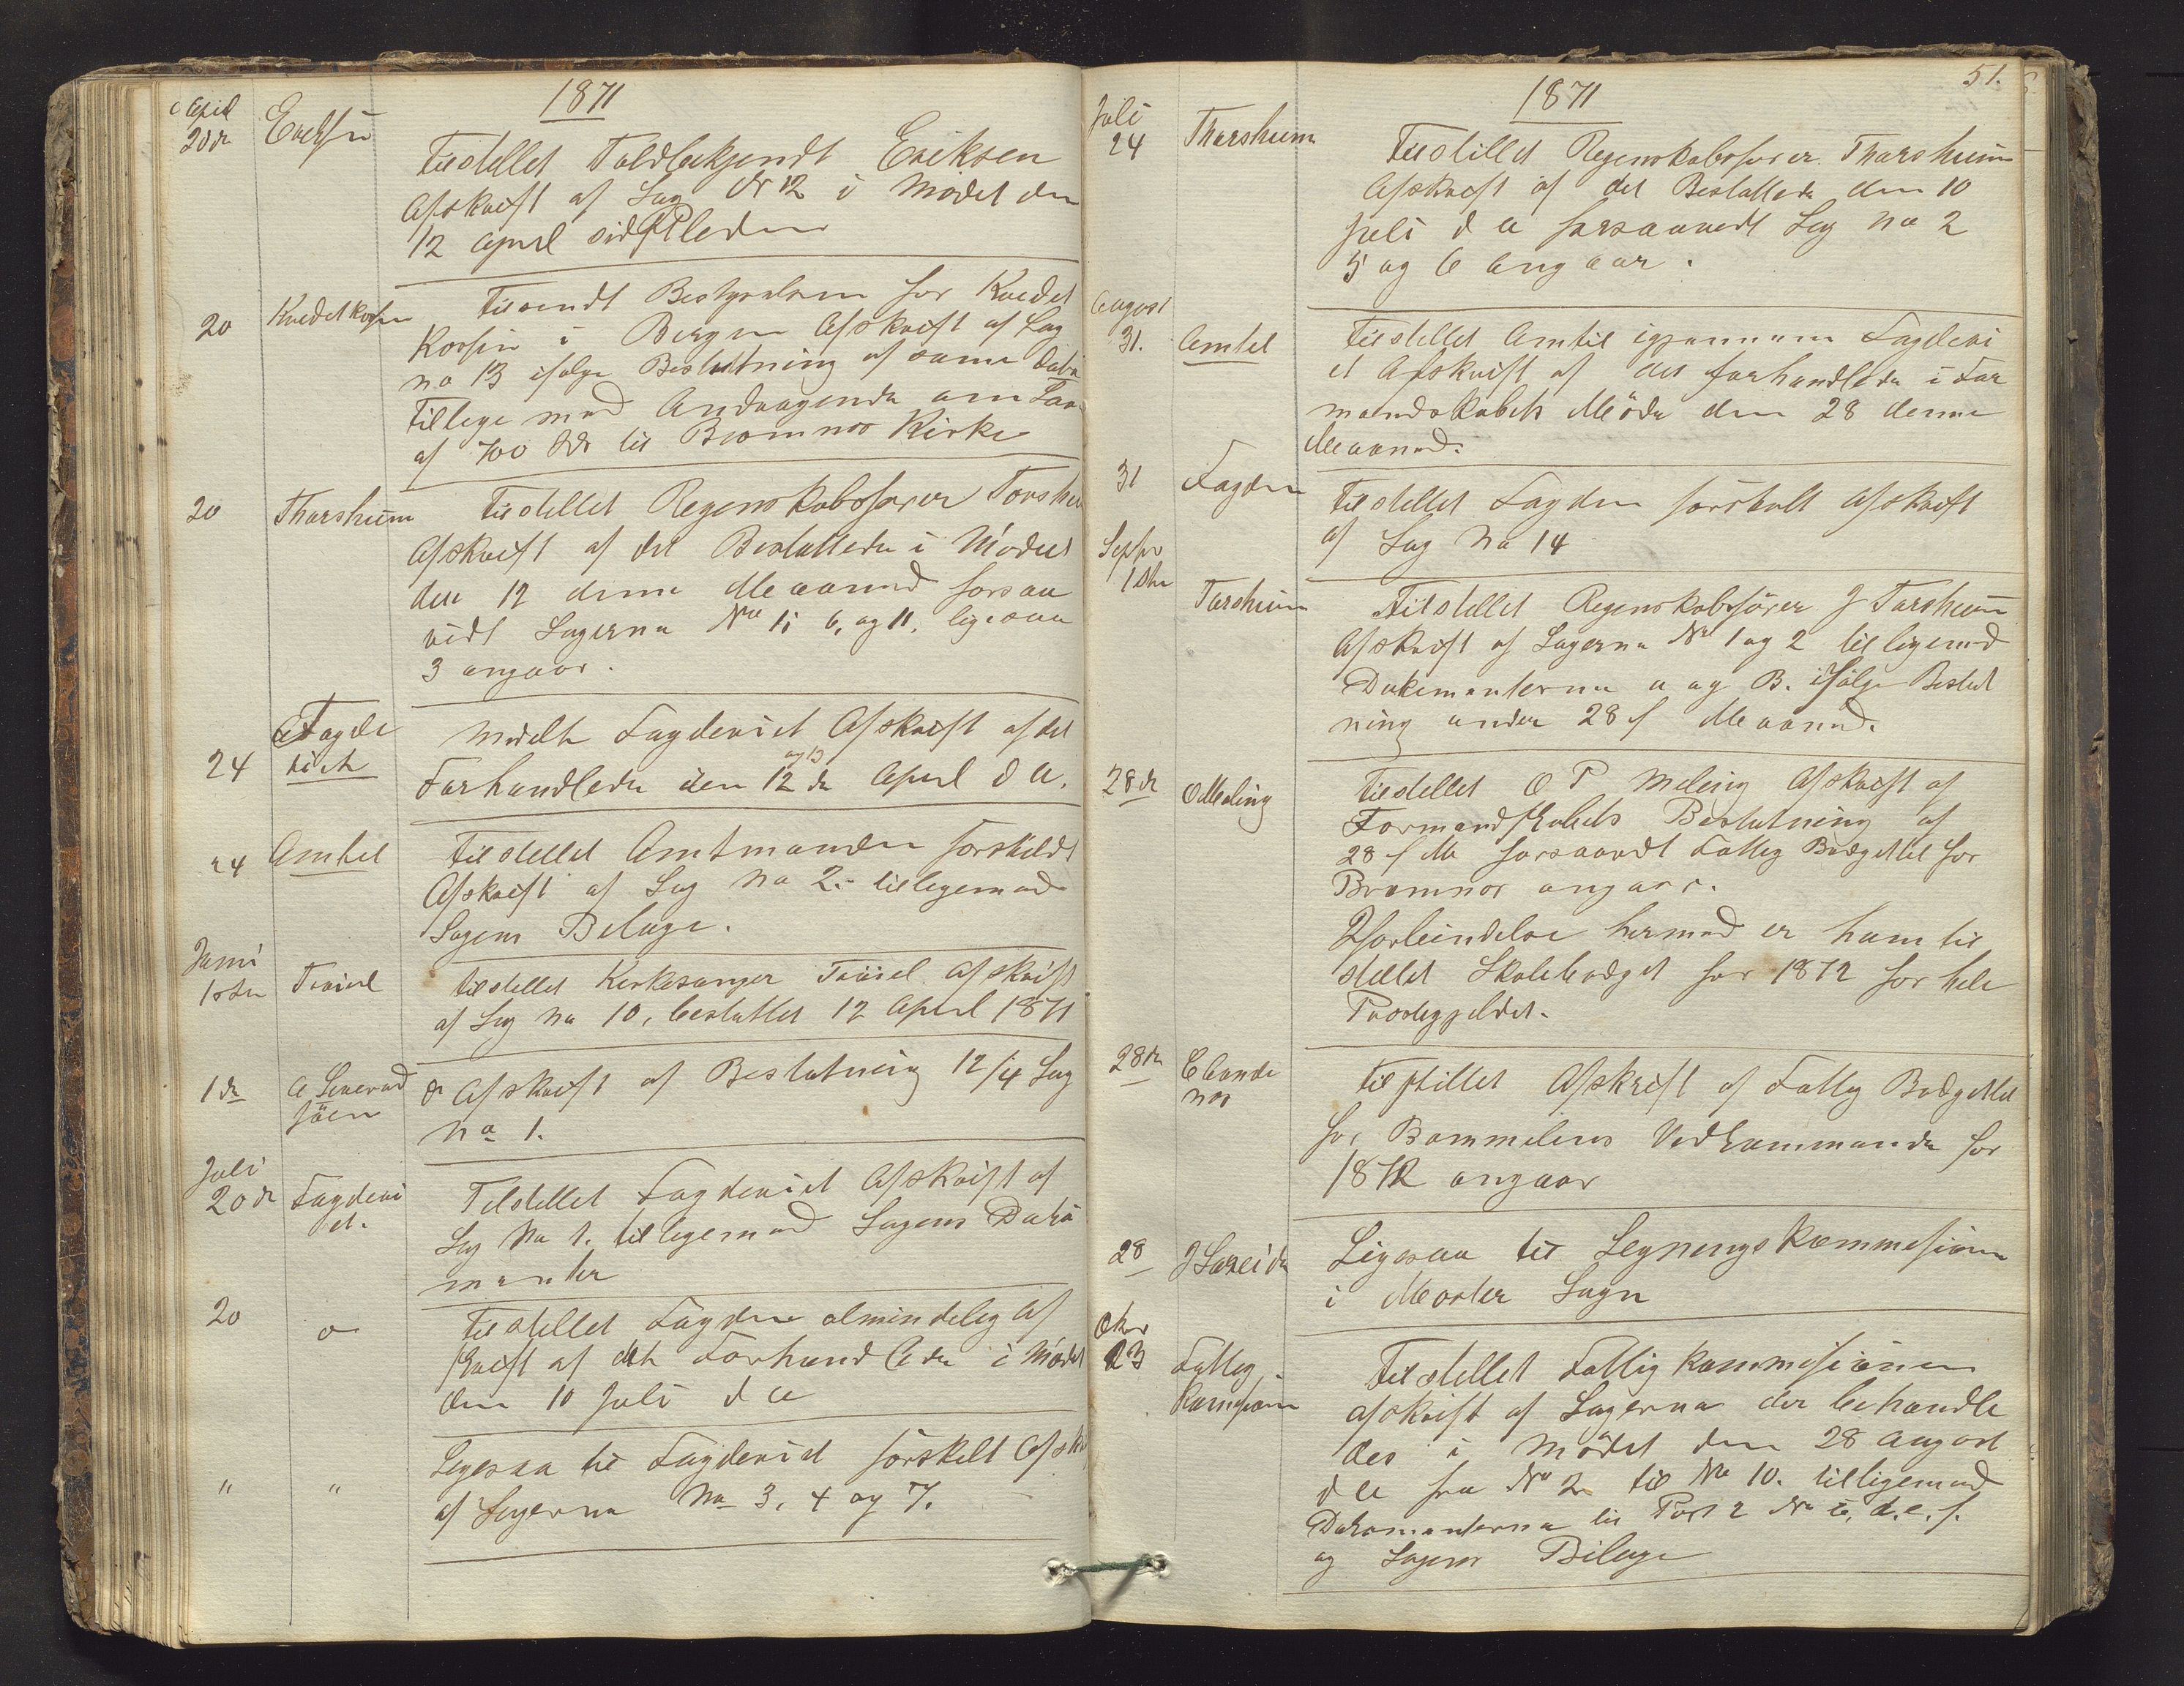 1871
April
20de Erichsen
Tilstillet Toldbetjendt Eriksen
Afskrift af Sag No 12 i Mødet den
12 April sidstleden
20 Kredetkassen
Tilsendt Bestyrelsen for Kredet
Kassen i Bergen Afskrift af Sag
no 13 ifølge Beslutning af samme Dato
Tillige med Andragende om Laan
af 700 Spd til Bremnes Kirke
20 Thorsheim
Tilstillet Regenskabsfører Torsheim
Afskrift af det Besluttede i Mødet
den 12 denne Maaned forsaa
vidt Sagerna No 1, 6, og 11, ligesaa
3 angaar.
24 Fogde
riet
Meddelt Fogderiet Afskrift af det
og 13
Forhandlede den 12de April d A.
24 Amtet
Tilstillet Amtmanden forskildt
Afskrift af Sag No 2. tilligemed
Sagens Belage.
Juni
1ste
Tilstillet Kirkesanger Afskrift
af Sag No 10, besluttet 12 April 1871
1de A
søen
do Afskrift af Beslutning 12/4 Sag
No 1.
Juli
20de Fogderi
et.
Tilstillet Fogderiet Afskrift af
Sag No 1. tilligemed Sagens Doku
menter
20 do
Tilstillet Fogden almindelig Af
skrift af det Forhandlede i Mødet
den 10 Juli d A
" "
Ligesaa til Fogderiet forskelt Afskr
af Sagerna No 3, 4 og 7.
51.
1871
Juli
24 Thorsheim
Tilstillet Regenskabsfører Thorsheim
Afskrift af det Besluttede den 10
Juli d A forsaavidt Sag No 2
5 og 6 angaar.
August
31. Amtet
Tilstillet Amtet igjennem Fogderi
et Afskrift af det forhandlede i For
mandskabets Møde den 28 denne
Maaned.
31 Fogden
Tilstillet Fogden forskelt Afskrift
af Sag No 14
Septbr
1ste Torsheim
Tilstillet Regenskabsfører J Torsheim
Afskrift af Sagerna No 1 og 2 tilligemed
Dokumenterna a og B. ifølge Beslut
ning under 28 f Maaned.
28de O Meling
Tilstillet O P Meling Afskrift af
Formandskabets Beslutning af
28 f M forsaavidt Fattig Budgettet for
Bremnes angaar.
I forbindelse hermed er ham til
stillet Skolebudget for 1872 for hele
Præstegjeldet.
28de
nes
Tilstillet Afskrift af Fattig Budgettet
for Bømmelens Vedkommende for
1872 angaar
28 J Læreide
Ligesaa til Legnings Kommesionen
i Moster Sogn
Oktr
23 Fattig
Komesion
Tilstillet Fattigkommesionen
afskrift af Sagerna der behandle
des i Mødet den 28 August
d A fra No 2 til No 10. tilligemed
Dokumenterna til Post 2 No c, d. e. f.
og Sagens Bilage